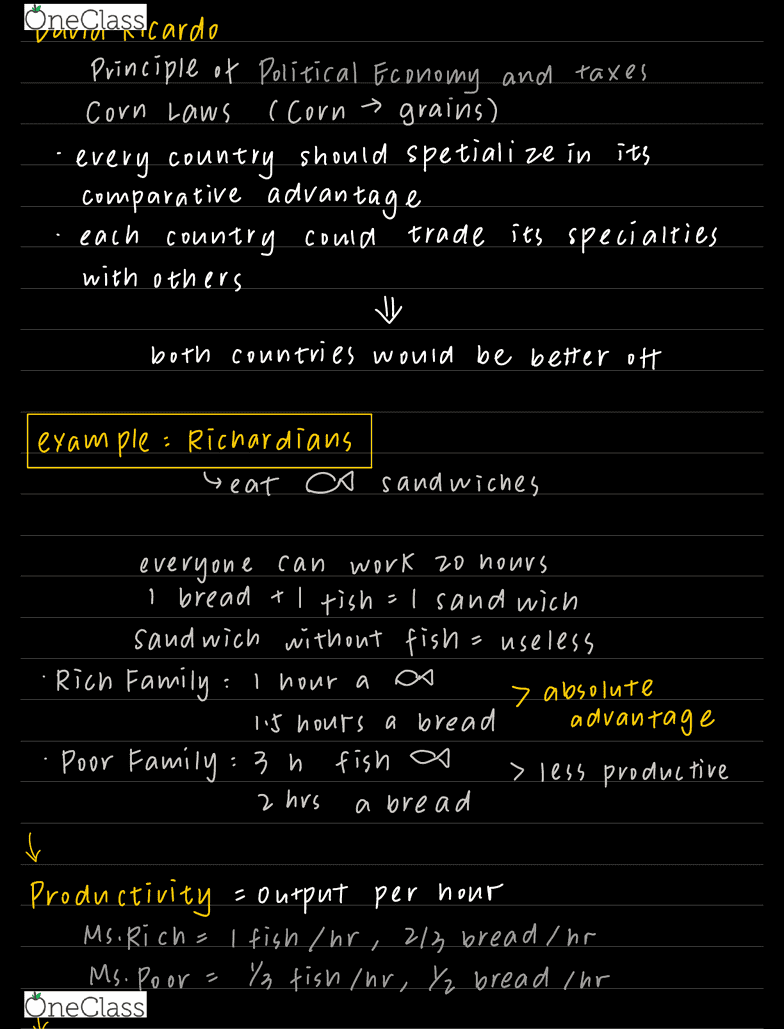 OneClass
David Ricardo
Principle of Political Economy and taxes
Corn Laws (Corn → grains)
· every country should spetialize in its
comparative advantage
· each country could trade its specialties
with others
⇓
both countries would be better off
example: Richardians
↳ eat sandwiches
everyone can work 20 hours
1 bread + 1 fish = 1 sandwich
sandwich without fish = useless
· Rich Family: 1 hour a
> absolute
advantage
1.5 hours a bread
· Poor Family: 3 h fish
> less productive
2 hrs a bread
↓
Productivity = output per hour
Ms. Rich = 1 fish/hr, 2/3 bread/hr
Ms. Poor = 1/3 fish/hr, 1/2 bread/hr
OneClass